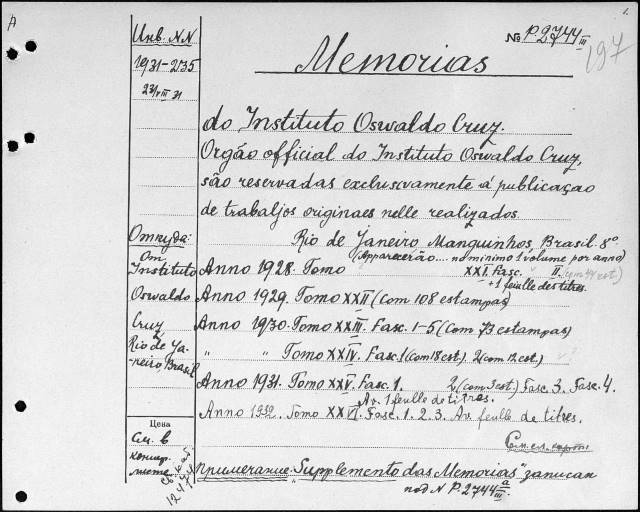 Инв. NN
1931-235
23/VIII 31
№ P. 2744 III
197
Memorias
do Instituto Oswaldo Cruz.
Orgão official do Instituto Oswaldo Cruz,
são reservadas exclusivamente á publicaçao
de trabaljos originaes nelle realizados.
Rio de Janeiro, Manguinhos, Brasil. 8º.
(Apparecerão.... no minimo 1 volume por anno)
Откуда:
От
Instituto
Oswaldo
Cruz
Rio de Ja-
neiro Brasil
Anno 1928. Tomo XXI. Fasc. II.
+ 1 feuille des titres.
Anno 1929. Tomo XXII (Com 108 estampas)
Anno 1930. Tomo XXIII. Fasc. 1-5 (Com 73 estampas)
" " Tomo XXIV. Fasc. 1 (com 18 est.). 2 (com 12 est.)
Anno 1931. Tomo XXV. Fasc. 1. 2 (com 3 est.) Fasc. 3. Fasc. 4.
Av. 1 feulle de titres.
Anno 1932. Tomo XXVI. Fasc. 1. 2. 3. Av. feulle de titres.
Цена
См. в
См. сл.
примечание: "Supplemento das Memorias" записан
под N P. 2744 a/III.